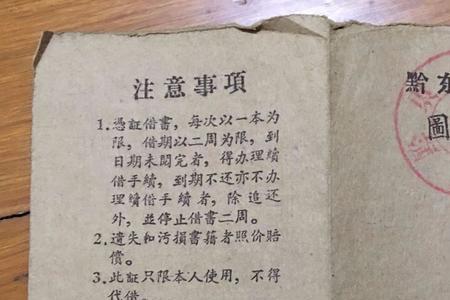 注意事項
1.憑証借書，每次以一本为
限，借期以二周为限，到
日期未閱完者，得办理續
借手續，到期不还亦不办
理續借手續者，除追还
外，並停止借書二周。
2.遺失和污損書籍者照价賠
償。
3.此証只限本人使用，不得
代借。
黔东
圖